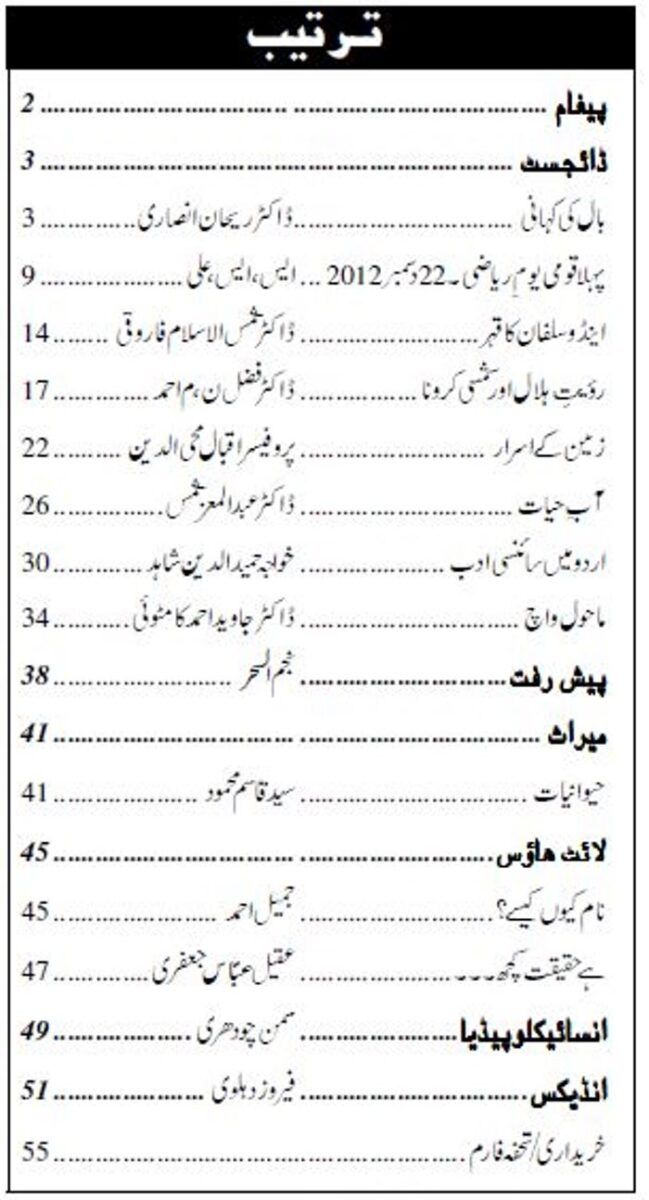 ترتیب
پیغام ........................................ 2
ڈائجسٹ ........................................ 3
بال کی کہانی .................... ڈاکٹر ریحان انصاری .................... 3
پہلا قومی یومِ ریاضی۔22 دسمبر 2012 ... ایس،ایس،علی .................... 9
اینڈوسلفان کا قہر .................... ڈاکٹر شمس الاسلام فاروقی ........ 14
رؤیتِ ہلال اور شمسی کرونا .................... ڈاکٹر فضل ن،م احمد .............. 17
زمین کے اسرار .................... پروفیسر اقبال محی الدین .......... 22
آبِ حیات .................... ڈاکٹر عبدالمعز شمس .............. 26
اردو میں سائنسی ادب .................... خواجہ حمیدالدین شاہد ............ 30
ماحول واچ .................... ڈاکٹر جاوید احمد کامٹوئی .......... 34
پیش رفت .................... نجم السحر .................... 38
میراث ........................................ 41
حیوانیات .................... سید قاسم محمود .................... 41
لائٹ ھاؤس ........................................ 45
نام کیوں کیسے؟ .................... جمیل احمد .................... 45
ہے حقیقت کچھ۔۔۔ .................... عقیل عباس جعفری .............. 47
انسائیکلوپیڈیا .................... سمن چودھری .................... 49
انڈیکس .................... فیروز دہلوی .................... 51
خریداری/تحفہ فارم ........................................ 55